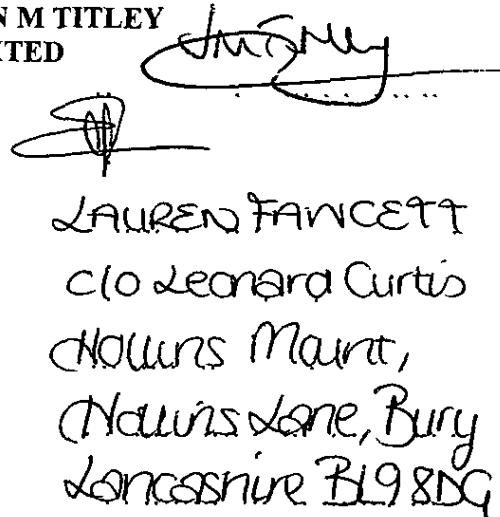 N M TITLEY
ITED
LAUREN FAWCETT
C/O Leonard Curtis
Hollins Mount,
Hollins Lane, Bury
Lancashire BL9 8DG